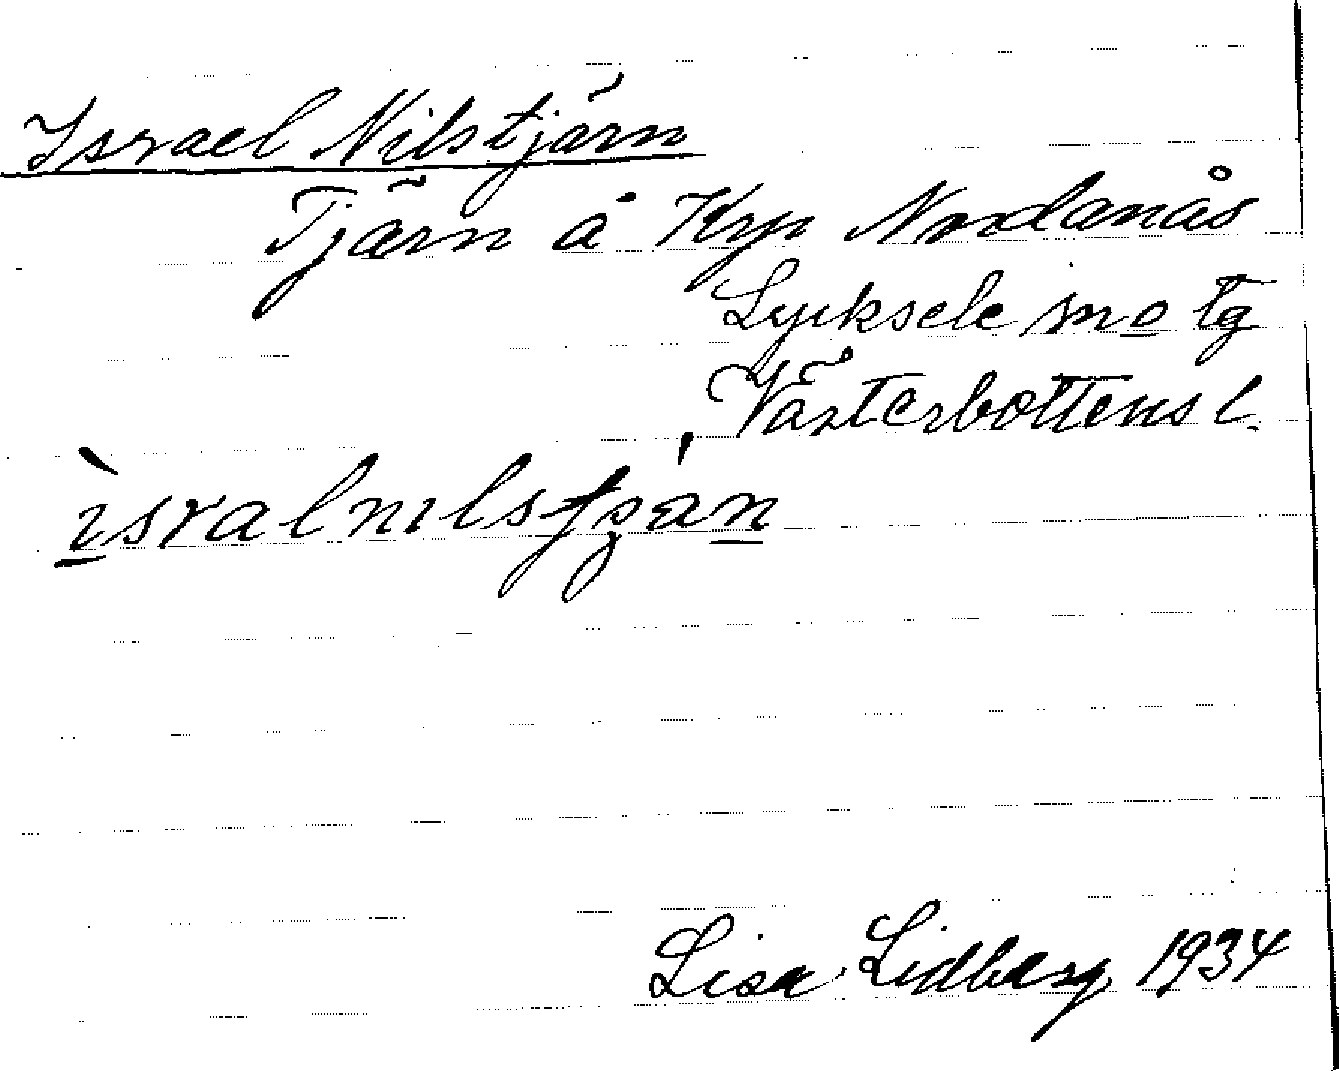 Israel Nilstjärn
Tjärn å Krp Nordanås
Lycksele sn o tg
Västerbottens l.
Lisa Lidberg 1934